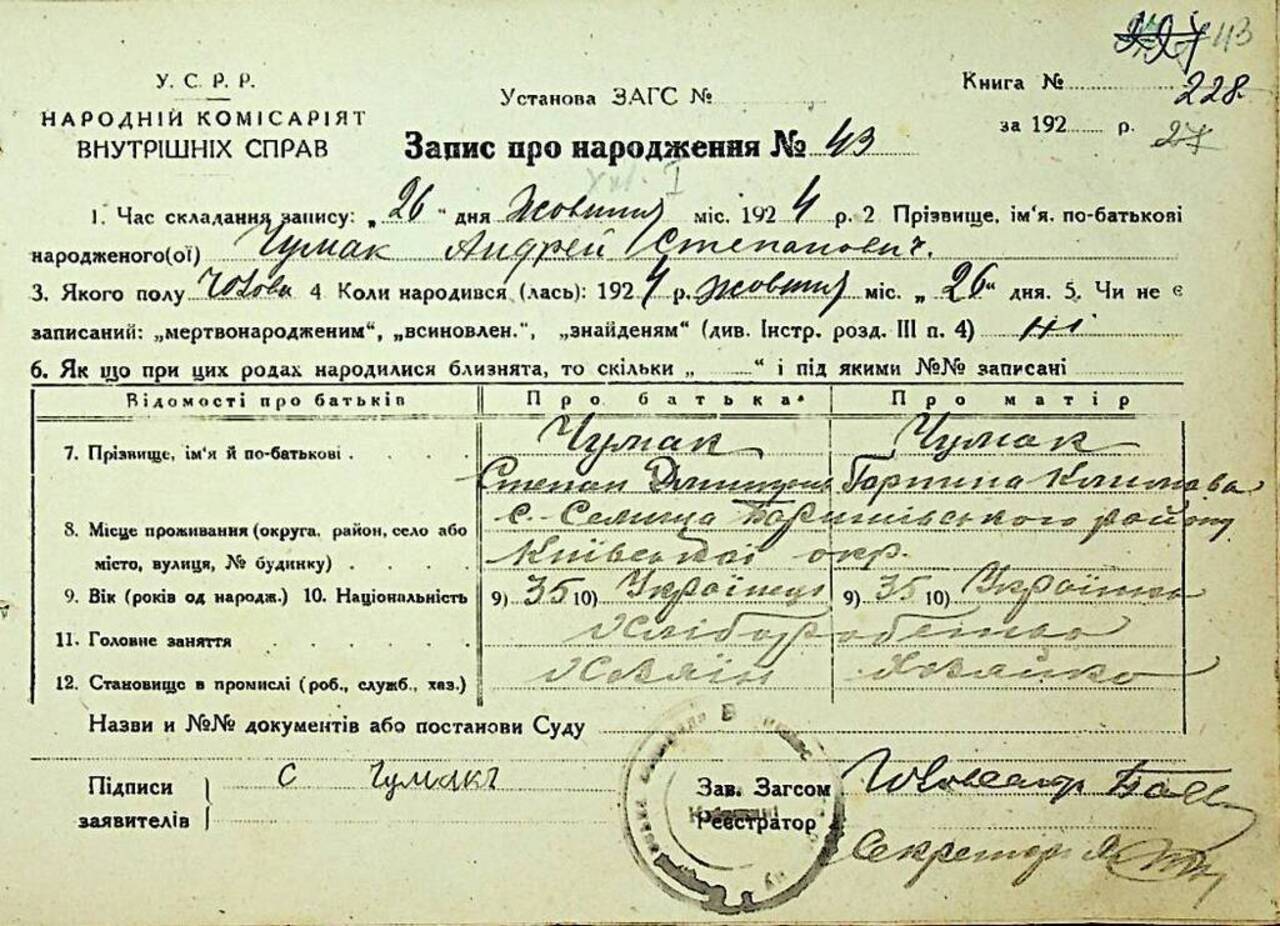 43
У. С. Р. Р.
НАРОДНІЙ КОМІСАРІЯТ
ВНУТРІШНІХ СПРАВ
Установа ЗАГС №
Книга № 228.
за 192 р. 27
Запис про народження № 43
1. Час складання запису: „26“ дня Жовтня міс. 1924 р. 2 Прізвище, ім'я, по-батькові
народженого(ої) Чумак Андрей Степанович.
3. Якого полу Чолові 4 Коли народився (лась): 1924 р. Жовтня міс. „26“ дня. 5. Чи не є
записаний: „мертвонародженим“, „всиновлен.“, „знайденям“ (див. Інстр. розд. III п. 4) ні
6. Як що при цих родах народилися близнята, то скільки „ “ і під якими №№ записані
Відомості про батьків Про батька Про матір
7. Прізвище, ім'я й по-батькові Чумак Чумак
Степан Горпина Климова
8. Місце проживання (округа, район, село або с. Селища Баришівського району
місто, вулиця, № будинку) Київської окр.
9. Вік (років од народж.) 10. Національність 9) 35 10) Українець 9) 35 10) Українка
11. Головне заняття Хліборобство
12. Становище в промислі (роб., служб., хаз.) Хазяїн Хазяйка
Назви и №№ документів або постанови Суду
Підписи С Чумакъ Зав. Загсом
заявителів Реєстратор Секретар